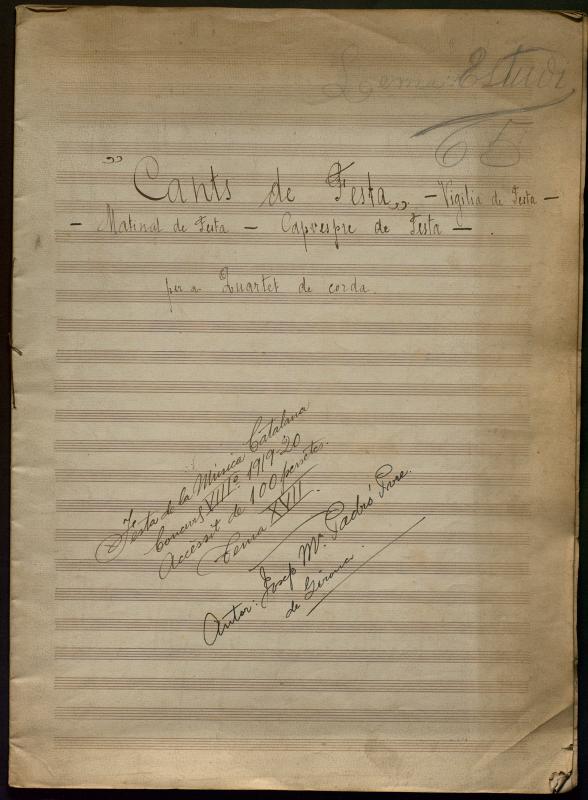 Lema: Estudi
65
"Cants de Festa" — Vigilia de Festa —
— Matinal de Festa — Capvespre de Festa — .
per a Quartet de corda.
Festa de la Música Catalana
Concurs VIIIè 1919-20
Accèssit de 100 pessetes.
Tema XVII.
Autor: Josep Mª Padró Pvre.
de Girona.